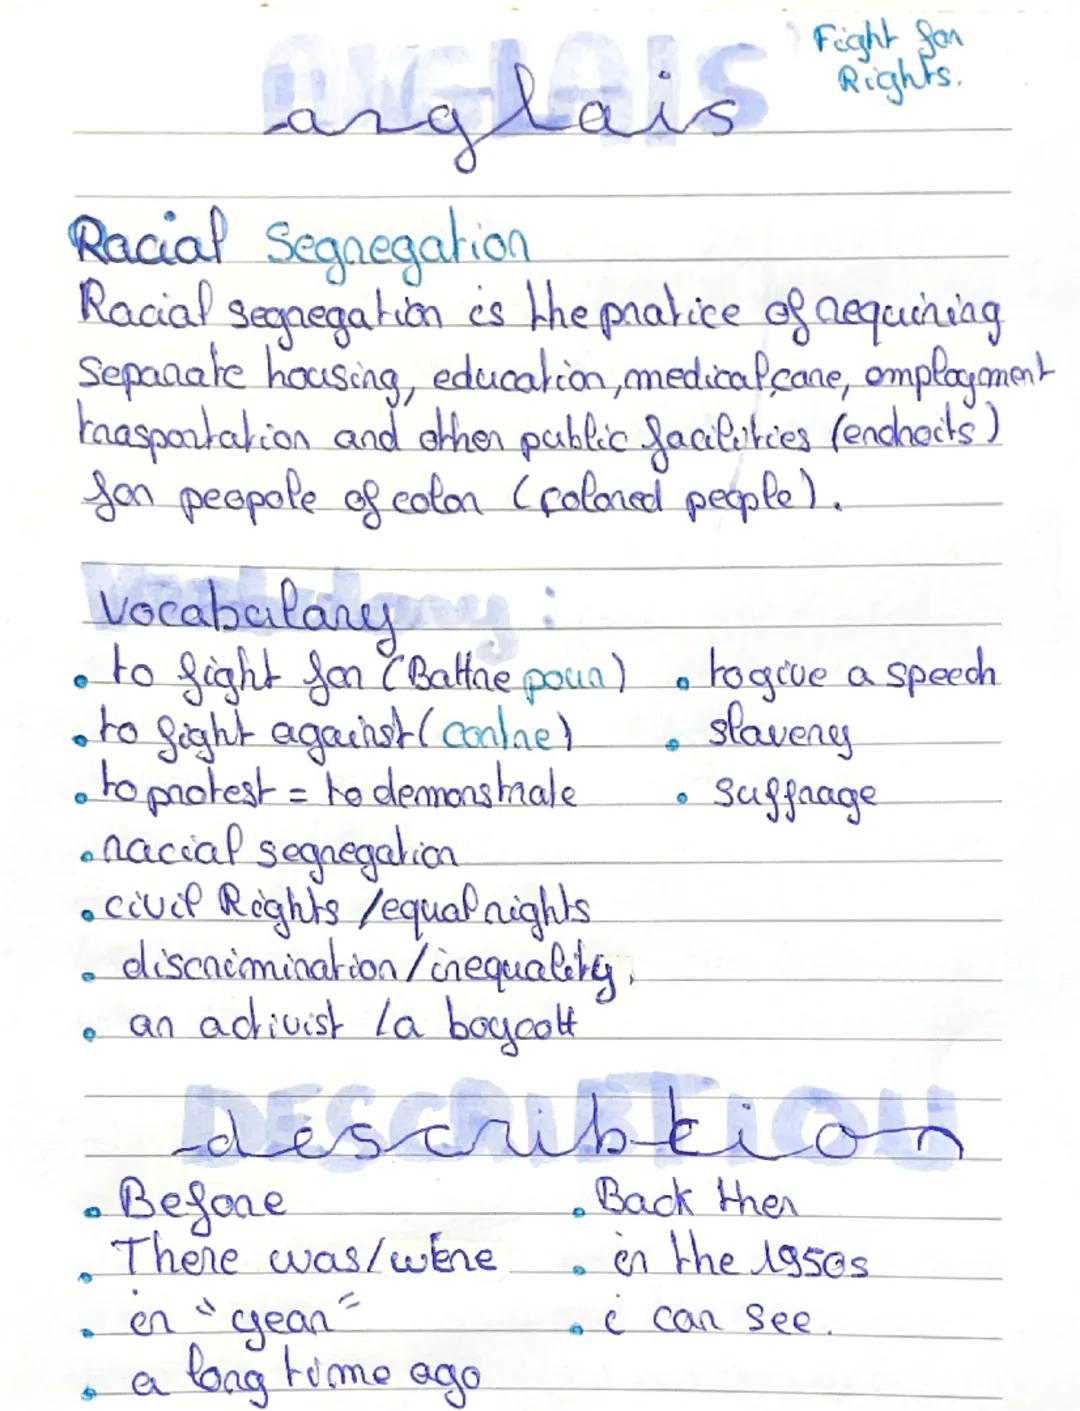 anglais
Fight for
Rights.
Racial Segregation
Racial segregation is the pratice of requiring
separate housing, education, medical care, employment
trasportation and other public facilities (endroits)
for peopole of color (colored people).
Vocabulary :
• to fight for (Battre pour)
• to give a speech
• to fight against (contre)
• slavery
• to protest = to demonstrate
• suffrage
• racial segregation
• civil Rights / equal rights
• discrimination / inequality,
• an activist / a boycott
describtion
• Before
• Back then
• There was/were
• in the 1950s
• in "year"
• i can see.
• a long time ago